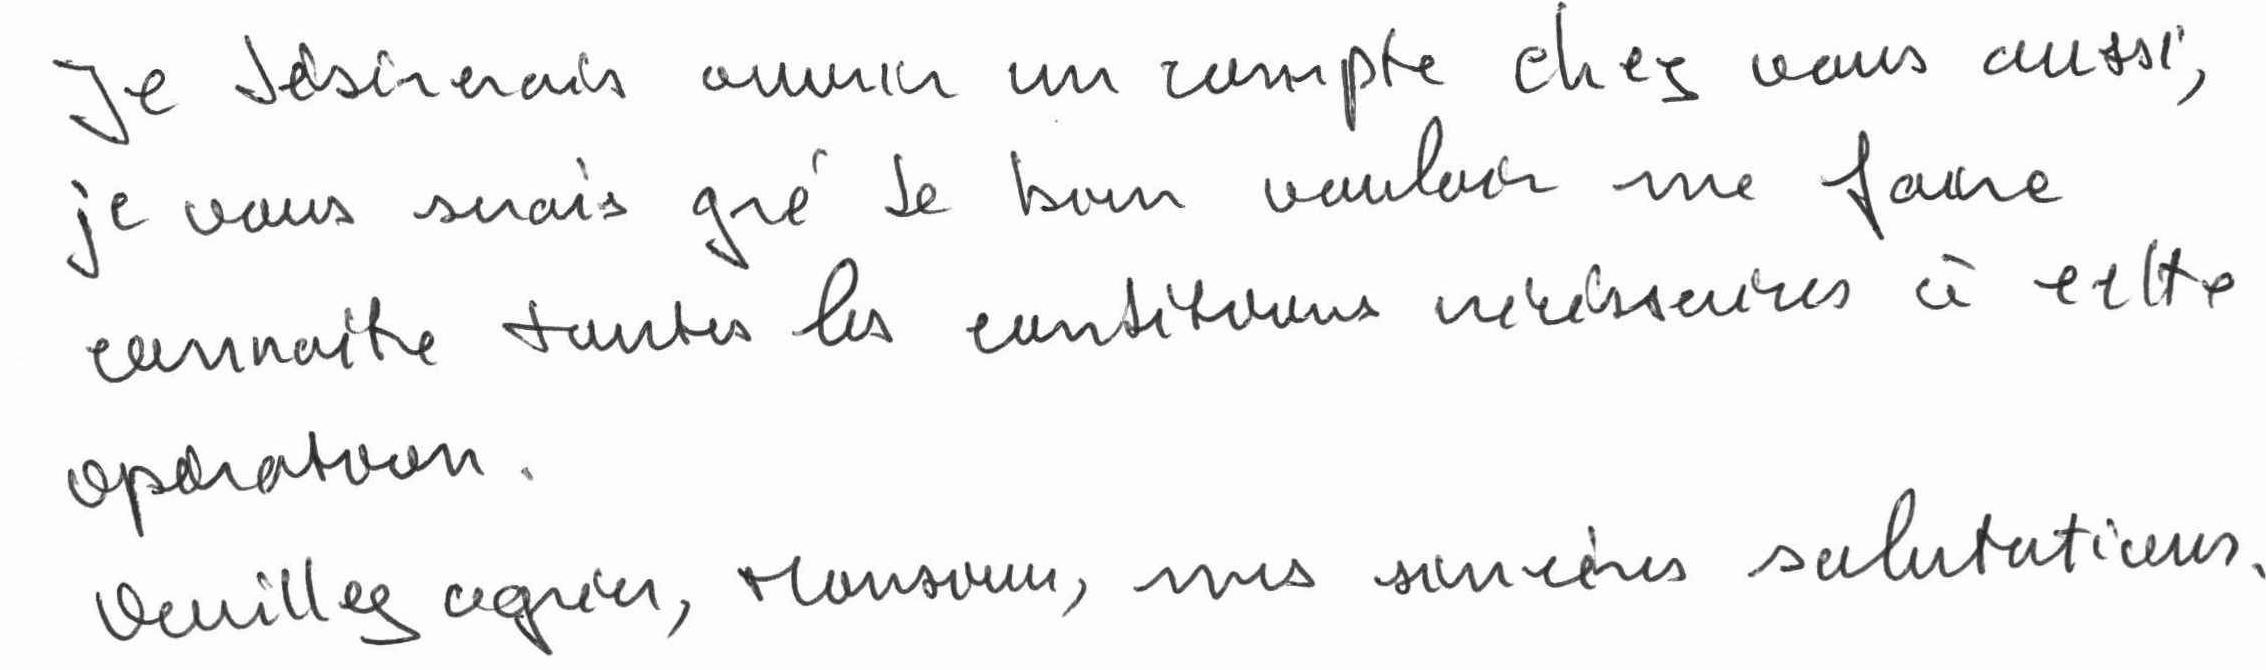 Je désirerais ouvrir un compte chez vous aussi,
je vous serais gré de bien vouloir me faire
connaître toutes les conditions nécéssaires à cette
opération.
Veuillez agréer, Monsieur, mes sincères salutations.